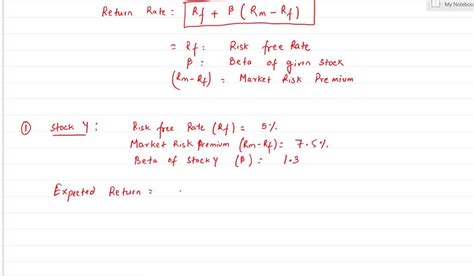 My Notebook
Return Rate = Rf + β (Rm - Rf)
= Rf : Risk free Rate
β : Beta of given stock
(Rm - Rf) = Market Risk Premium
① Stock Y : Risk free Rate (Rf) = 5%.
Market Risk Premium (Rm-Rf) = 7.5%.
Beta of Stock Y (β) = 1.3
Expected Return =